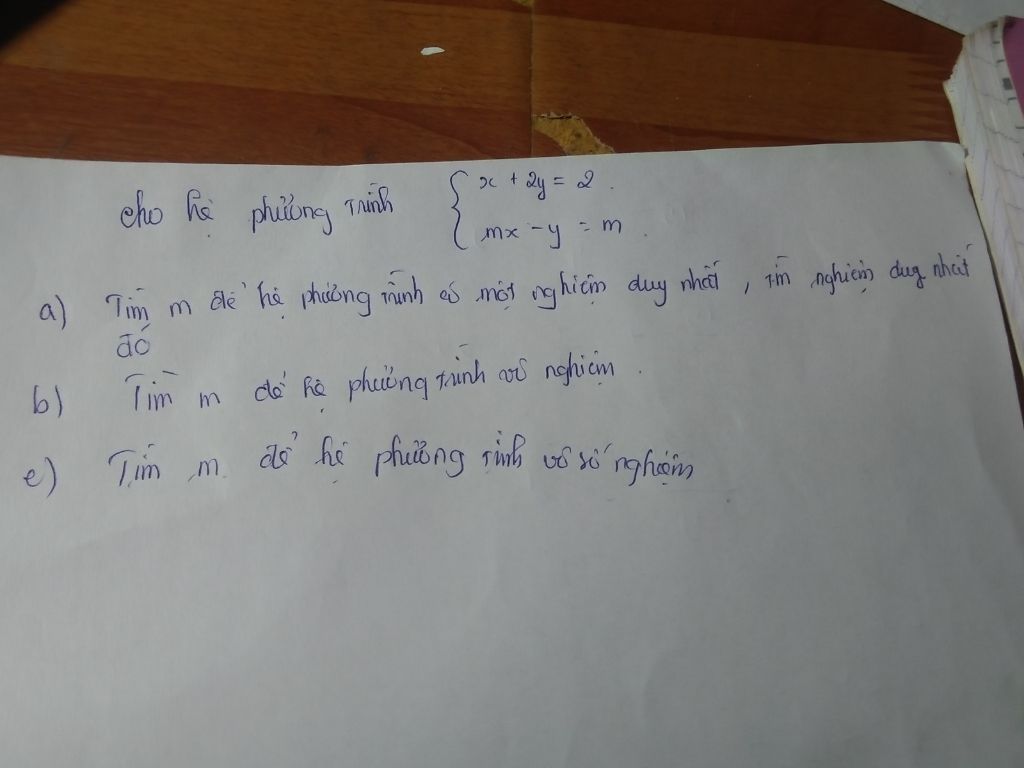 cho hệ phương trình { x + 2y = 2.
mx - y = m.
a) Tìm m để hệ phương trình có một nghiệm duy nhất, tìm nghiệm duy nhất
đó
b) Tìm m để hệ phương trình vô nghiệm.
c) Tìm m để hệ phương trình vô số nghiệm